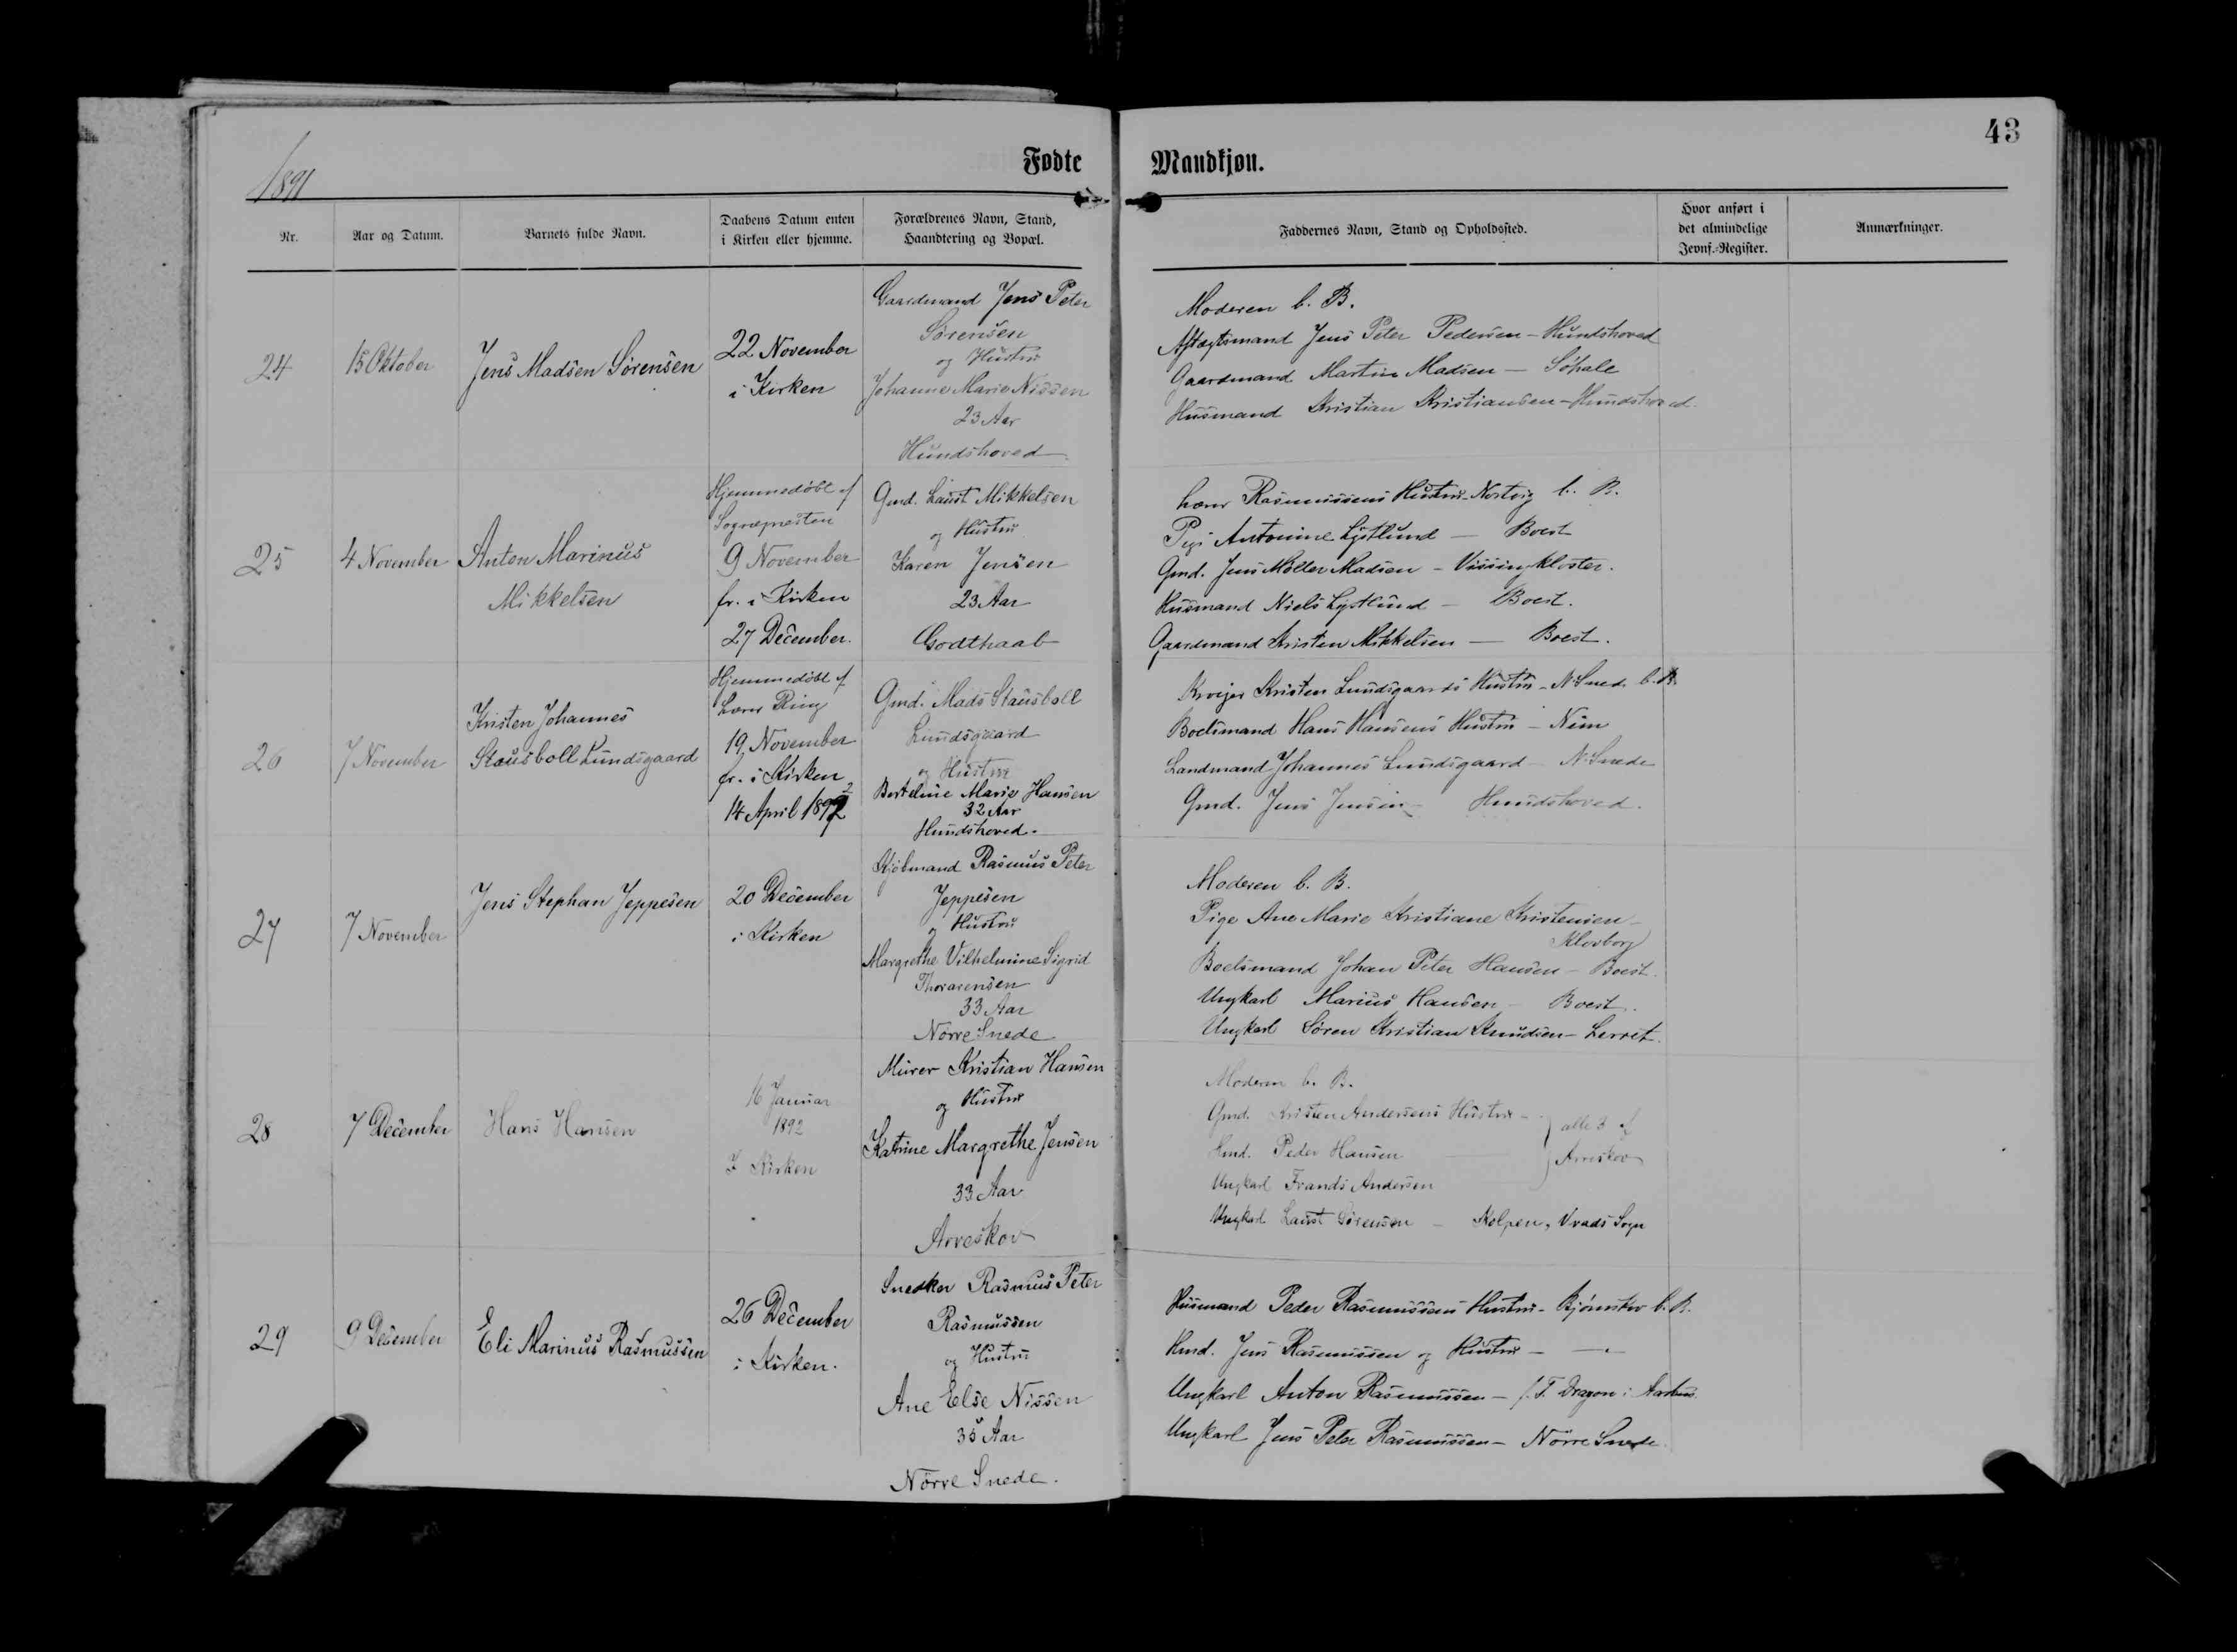 43
1891
Fødte Mandkjøn.
Nr.
Aar og Datum.
Barnets fulde Navn.
Daabens Datum enten
i Kirken eller hjemme.
Forældrenes Navn, Stand,
Haandtering og Bopæl.
Faddernes Navn, Stand og Opholdssted.
Hvor anført i
det almindelige
Jevnf.-Register.
Anmærkninger.
24
15 Oktober
Jens Madsen Sörensen
22 November
i Kirken
Gaardmand Jens Peter
Sörensen
og Hustru
Johanne Marie Nissen
23 Aar
Hundshoved
Moderen b. B.
Aftægtsmand Jens Peter Pedersen - Hundshoved
Gaardmand Martin Madsen - Söhale
Husmand Kristian Kristiansen - Hundshoved
25
4 November
Anton Marinus
Mikkelsen
Hjemmedöbt af
Sognepræsten
9 November
fr. i Kirken
27 December.
Gmd. Laust Mikkelsen
og Hustru
Karen Jensen
23 Aar
Godthaab
Lærer Rasmussens Hustru - Nortvig b. B.
Pige Antonine Lystlund - Boest
Gmd. Jens Möller Madsen - Vissingkloster.
Husmand Niels Lystlund - Boest.
Gaardmand Kristen Mikkelsen - Boest.
26
7 November
Kristen Johannes
Stausboll Lundsgaard
Hjemmedöbt af
Lærer Ring
19 November
fr. i Kirken
14 April 1892
Gmd. Mads Stausboll
Lundsgaard
og Hustru
Berteline Marie Hansen
32 Aar
Hundshoved.
Kroejer Kristen Lundsgaards Hustru - N. Snede b. B.
Boelsmand Hans Hansens Hustru - Nim
Landmand Johannes Lundsgaard - N. Snede
Gmd. Jens Jensen - Hundshoved.
27
7 November
Jens Stephan Jeppesen
20 December
i Kirken
Kjöbmand Rasmus Peter
Jeppesen
og Hustru
Margrethe Vilhelmine Sigrid
Thorarensen
33 Aar
Nörre Snede
Moderen b. B.
Pige Ane Marie Kristiane Kristensen -
Klovborg
Boelsmand Johan Peter Hansen - Boest.
Ungkarl Marius Hansen - Boest.
Ungkarl Sören Kristian Knudsen - Lerret.
28
7 December
Hans Hansen
16 Januar
1892
I Kirken
Murer Kristian Hansen
og Hustru
Katrine Margrethe Jensen
33 Aar
Arveskov
Moderen b. B.
Gmd. Kristen Andersens Hustru - alle 3 af
Hmd. Peder Hansen Arveskov
Ungkarl Frands Andersen
Ungkarl Laust Sörensen - Kolpen, Vrads Sogn
29
9 December
Eli Marinus Rasmussen
26 December
i Kirken.
Snedker Rasmus Peter
Rasmussen
og Hustru
Ane Else Nissen
35 Aar
Nörre Snede.
Husmand Peder Rasmussens Hustru - Björnskov b. B.
Hmd. Jens Rasmussen og Hustru - —„—
Ungkarl Anton Rasmussen - f. T. Dragon i Aarhus
Ungkarl Jens Peter Rasmussen - Nörre Snede.